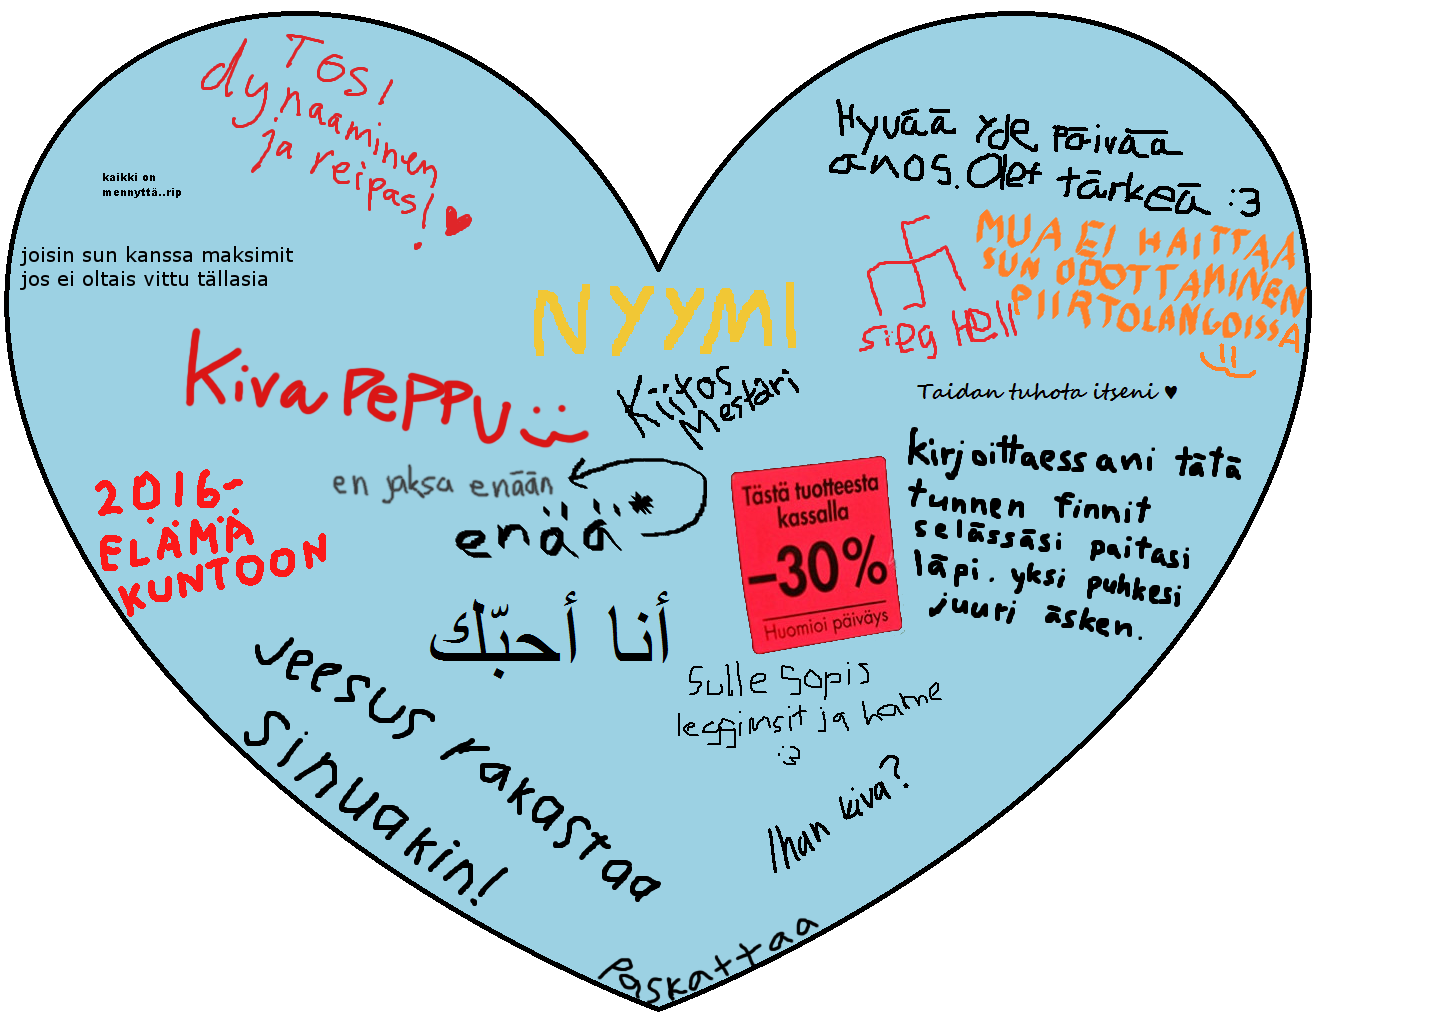 Tosi
dynaaminen
ja reipas! ♥
kaikki on
mennyttä..rip
joisin sun kanssa maksimit
jos ei oltais vittu tällasia
Hyvää yde päivää
anos. Olet tärkeä :3
MUA EI HAITTAA
SUN ODOTTAMINEN
PIIRTOLANGOISSA
NYYMI
sieg Hell
Kiva PEPPU
Kiitos
Mestari
Taidan tuhota itseni ♥
2016-
ELÄMÄ
KUNTOON
en jaksa enään
enää*
Tästä tuotteesta
kassalla
-30%
Huomioi päiväys
kirjoittaessani tätä
tunnen finnit
selässäsi paitasi
läpi. yksi puhkesi
juuri äsken.
أنا أحبّك
Jeesus rakastaa
sinuakin!
Sulle Sopis
leggimsit ja hame
:3
Ihan kiva?
Paskattaa